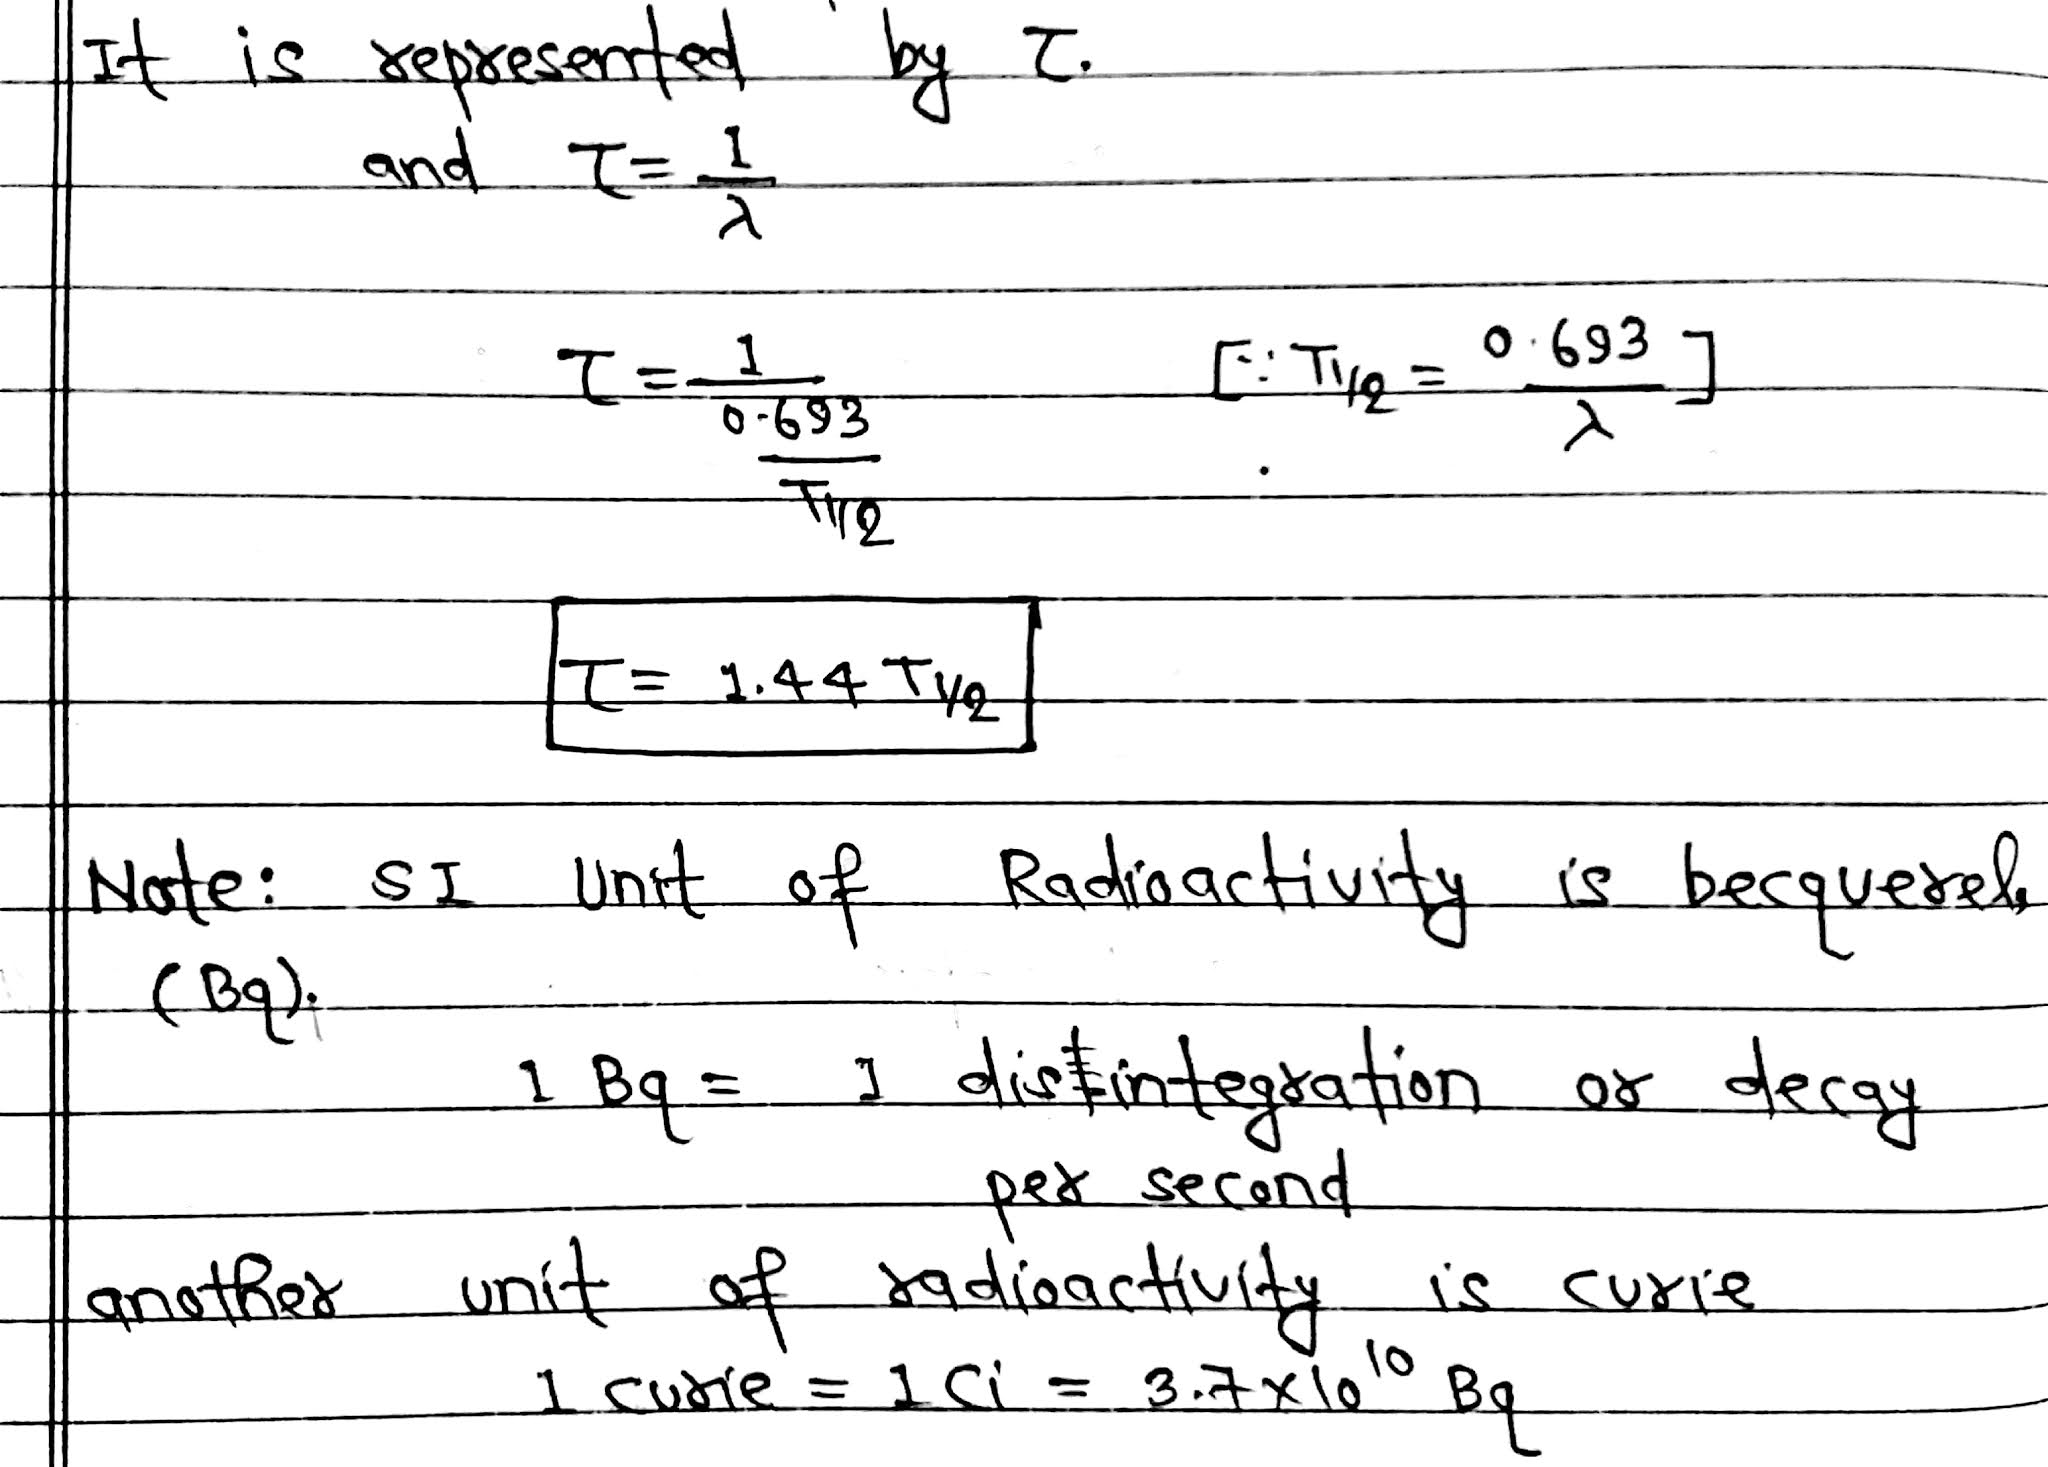 It is represented by τ.
and τ = 1/λ
τ = 1/(0.693/T1/2) [∵ T1/2 = 0.693/λ]
τ = 1.44 T1/2
Note: SI Unit of Radioactivity is becquerel,
(Bq).
1 Bq = 1 disintegration or decay
per second
another unit of radioactivity is curie
1 curie = 1 Ci = 3.7×10¹⁰ Bq